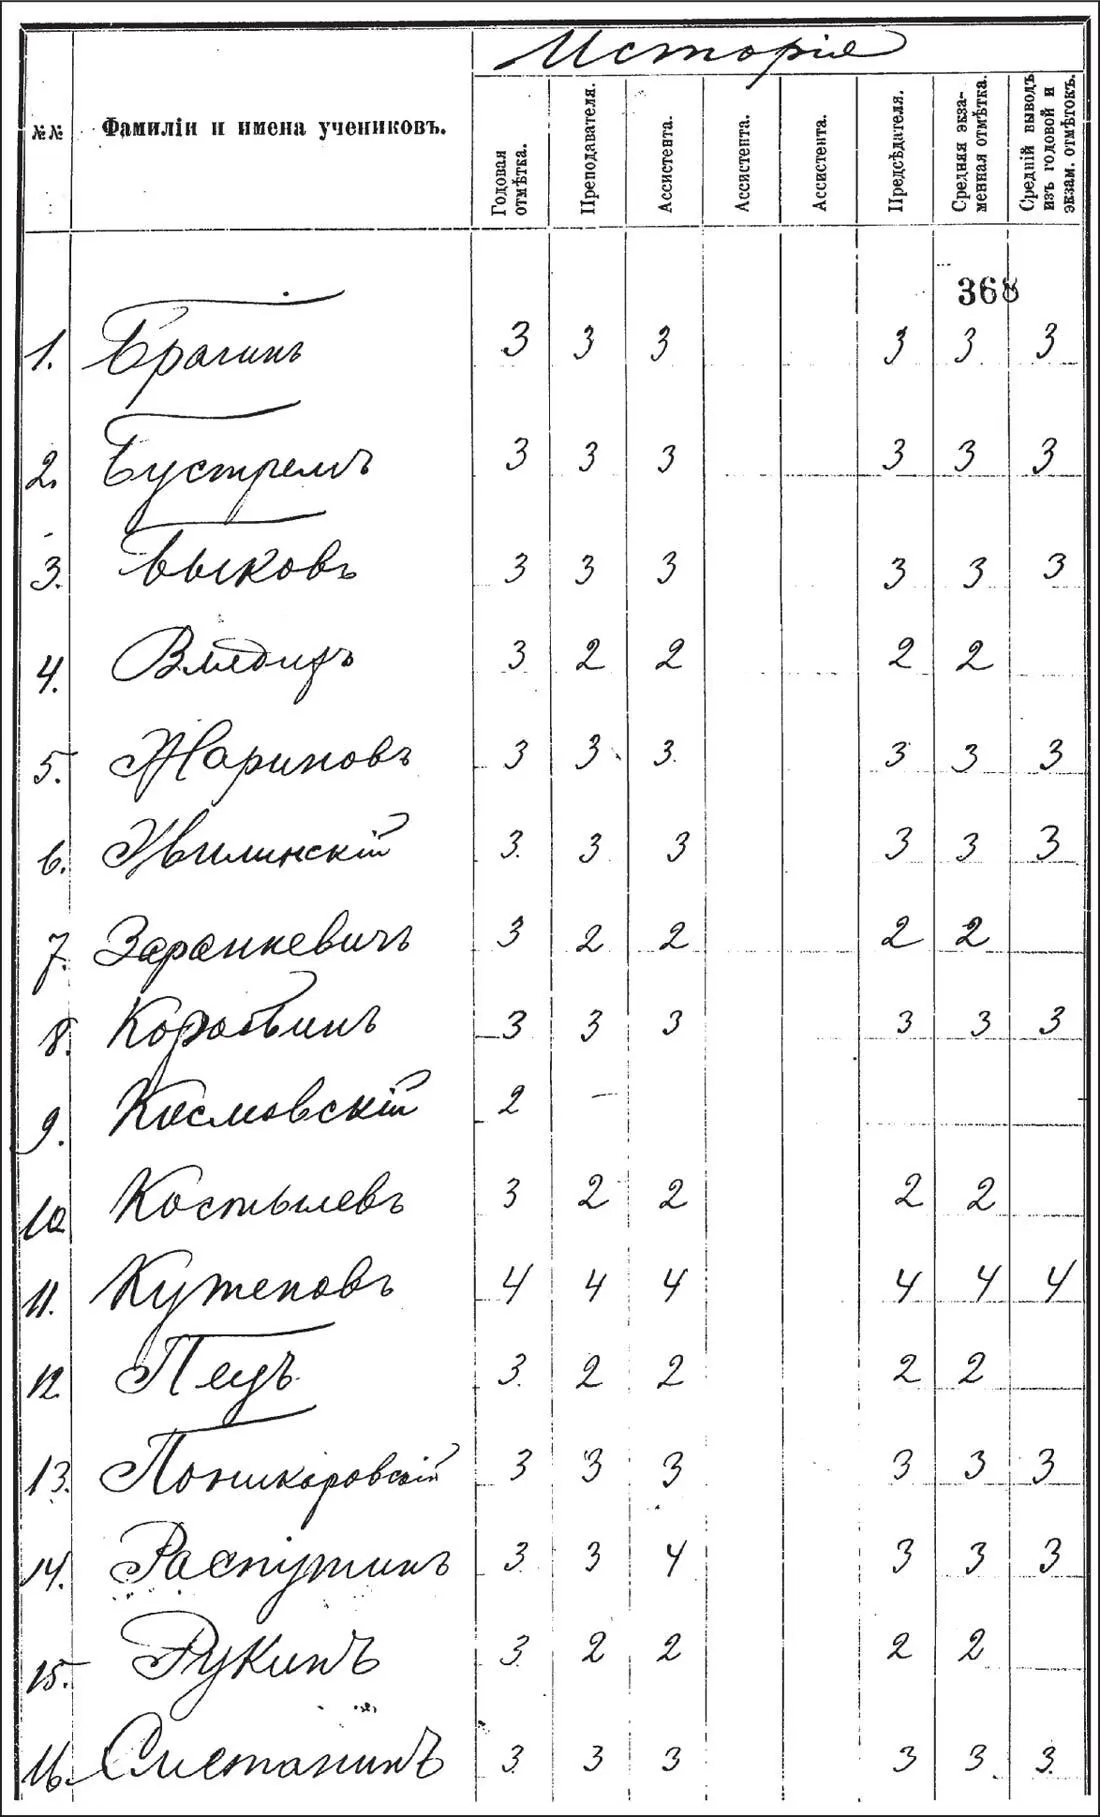 Исторія
№№ Фамиліи и имена учениковъ. Годовая отмѣтка. Преподавателя. Ассистента. Ассистента. Ассистента. Предсѣдателя. Средняя экзаменная отмѣтка. Средній выводъ изъ годовой и экзам. отмѣтокъ.
368
1. Брагинъ 3 3 3 3 3 3
2. Бустремъ 3 3 3 3 3 3
3. Быковъ 3 3 3 3 3 3
4. 3 2 2 2 2
5. Жариновъ 3 3 3 3 3 3
6. Жвилинскій 3 3 3 3 3 3
7. Заранкевичъ 3 2 2 2 2
8. Коробьинъ 3 3 3 3 3 3
9. Космовскій 2 –
10 Костылевъ 3 2 2 2 2
11. Кутеповъ 4 4 4 4 4 4
12. Пецъ 3 2 2 2 2
13. Поникаровскій 3 3 3 3 3 3
14. Распутинъ 3 3 4 3 3 3
15. Рукинъ 3 2 2 2 2
16. Сметанинъ 3 3 3 3 3 3